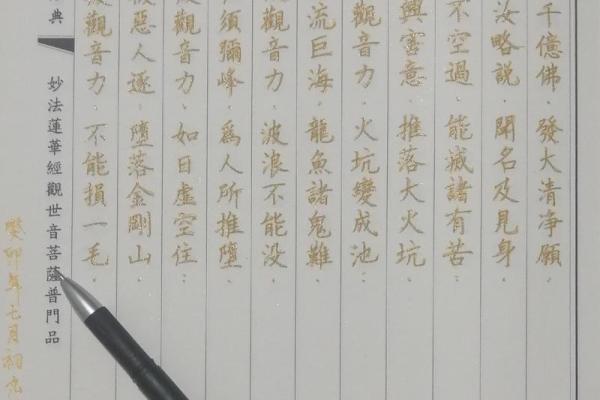 千億佛。發大清淨願。
汝略說。聞名及見身。
不空過。能滅諸有苦。
興害意。推落大火坑。
觀音力。火坑變成池。
流巨海。龍魚諸鬼難。
觀音力。波浪不能沒。
須彌峰。爲人所推墮。
觀音力。如日虛空住。
惡人逐。墮落金剛山。
觀音力。不能損一毛。
典
妙法蓮華經觀世音菩薩普門品
癸卯年七月初九